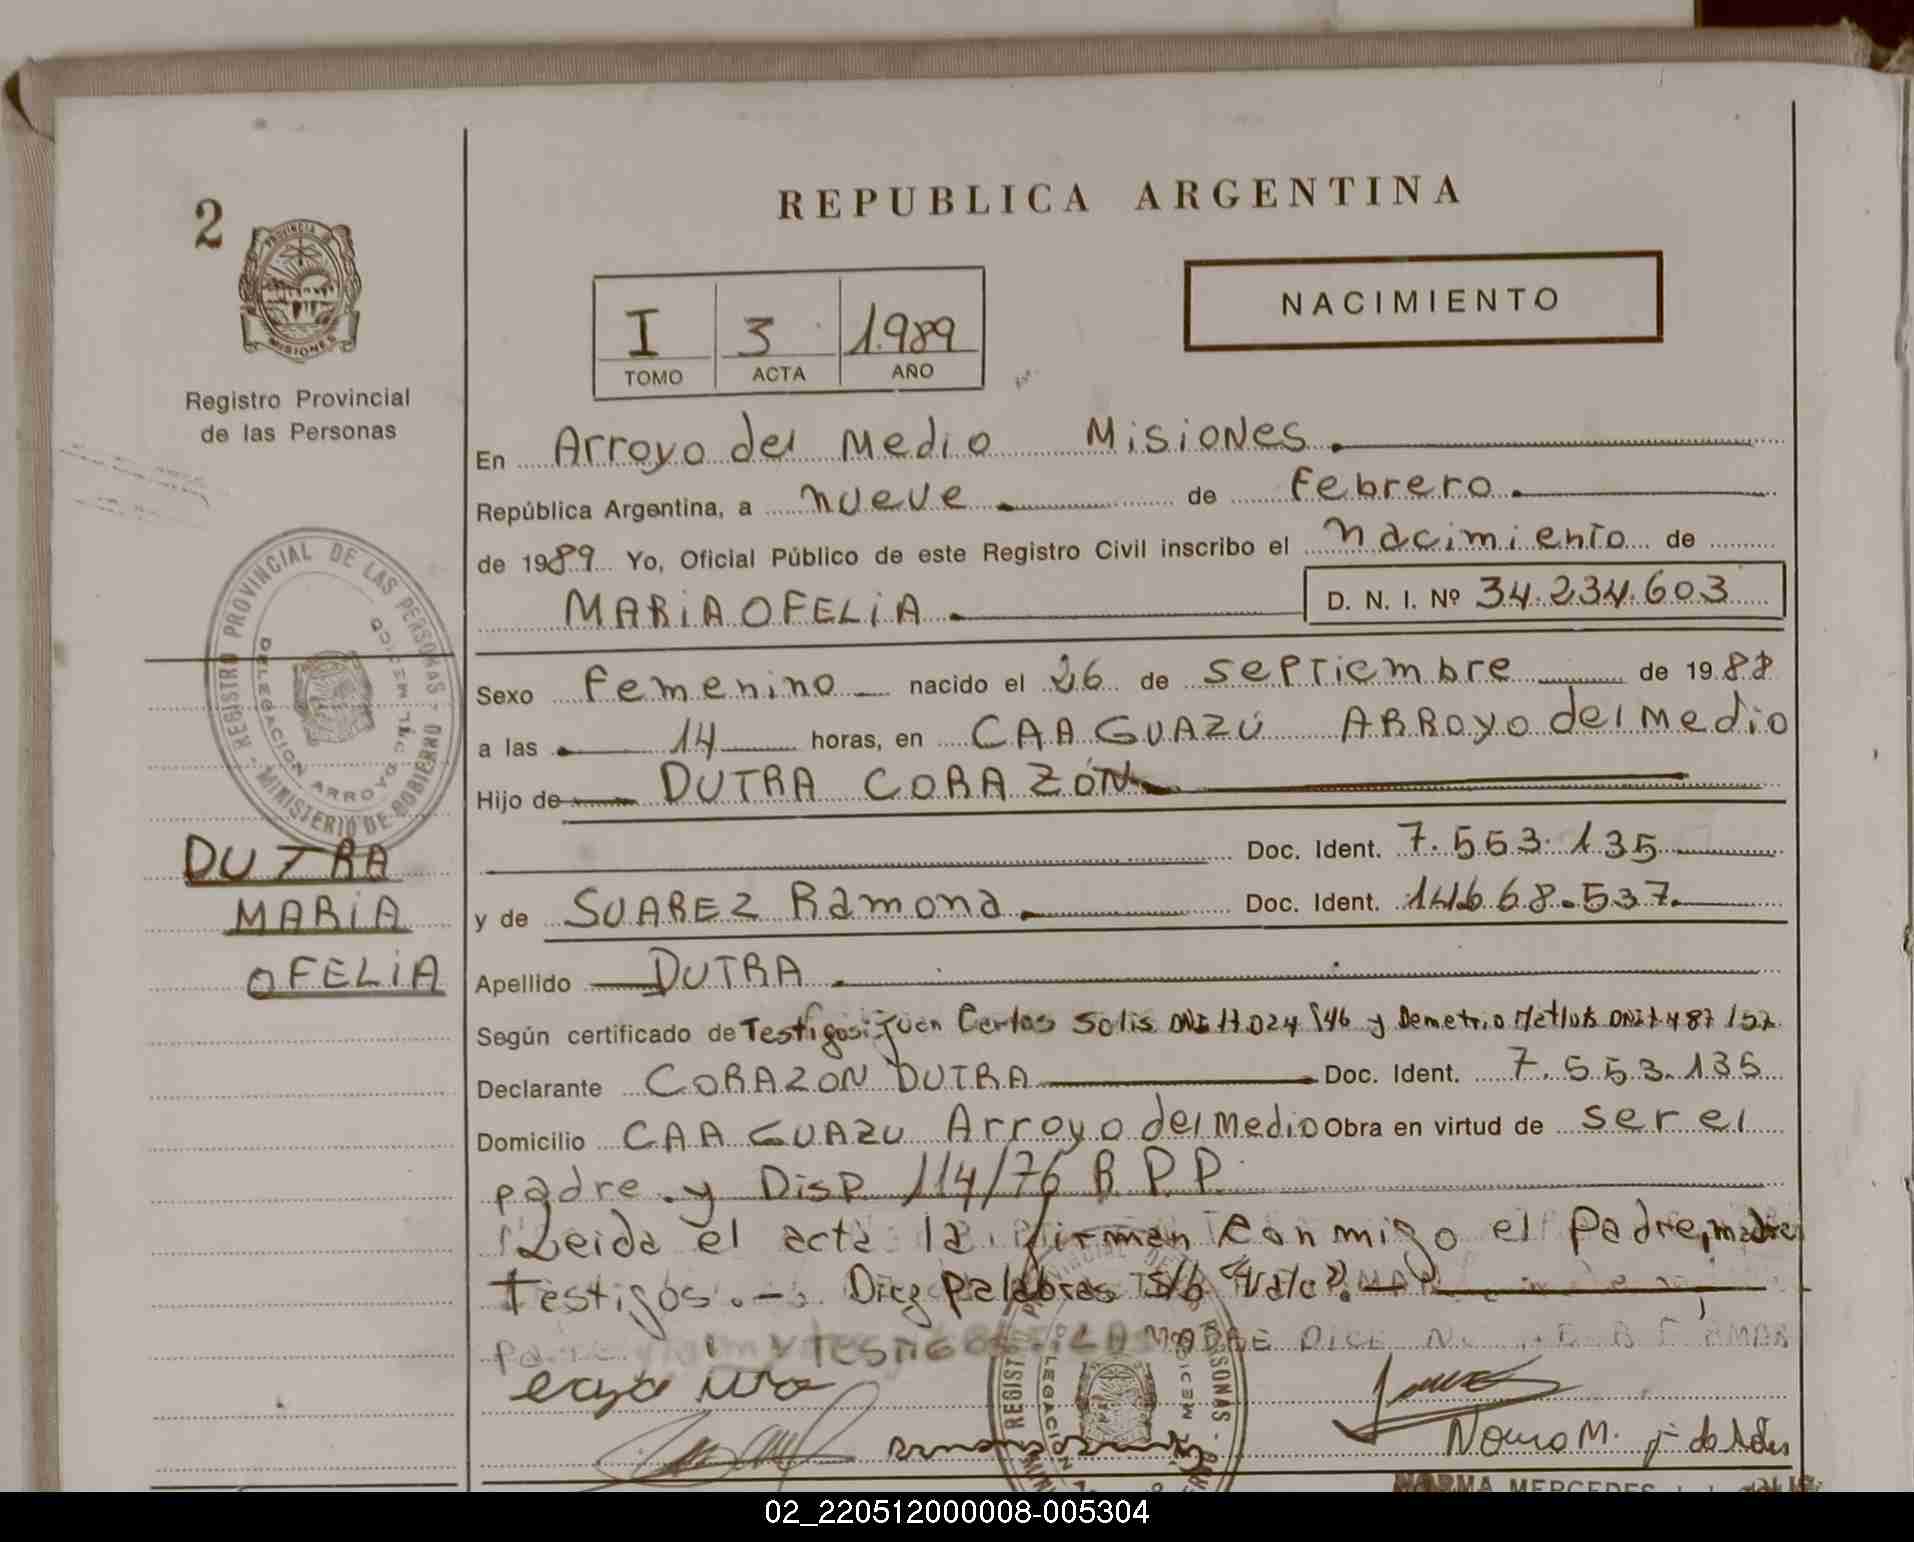 REPUBLICA ARGENTINA
2
PROVINCIA DE MISIONES
Registro Provincial
de las Personas
NACIMIENTO
I 3 1989
TOMO ACTA AÑO
En Arroyo del Medio Misiones.
República Argentina, a nueve de Febrero
de 1989 Yo, Oficial Público de este Registro Civil inscribo el Nacimiento de
MARIA OFELIA D. N. I. Nº 34.234.603
Sexo Femenino nacido el 26 de Septiembre de 1988
a las 14 horas, en CAAGUAZÚ Arroyo del Medio
Hijo de DUTRA CORAZÓN
Doc. Ident. 7.553.135
y de SUAREZ Ramona Doc. Ident. 14.668.537.
Apellido DUTRA
Según certificado de Testigos: Juan Carlos Solis DNI y Demetrio
Declarante CORAZON DUTRA Doc. Ident. 7.553.135
Domicilio CAAGUAZU Arroyo del Medio Obra en virtud de ser el
padre y Disp 114/76 R.P.P.
Leida el acta la firman conmigo el Padre, madre
Testigos.-. Diez palabras s/b "Vale".
y TESTIGOS MADRE DICE
Norma M.
NORMA MERCEDES
REGISTRO PROVINCIAL DE LAS PERSONAS - MINISTERIO DE GOBIERNO
DELEGACION ARROYO DEL MEDIO
DUTRA
MARIA
OFELIA
02_220512000008-005304